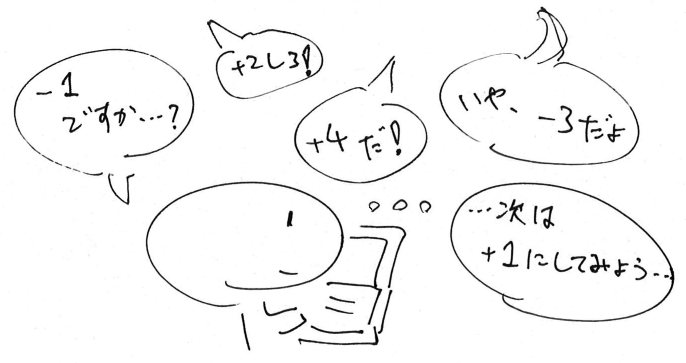 -1
ですか…?
+2しろ!
+4だ!
いや、-3だよ
…次は
+1にしてみよう…